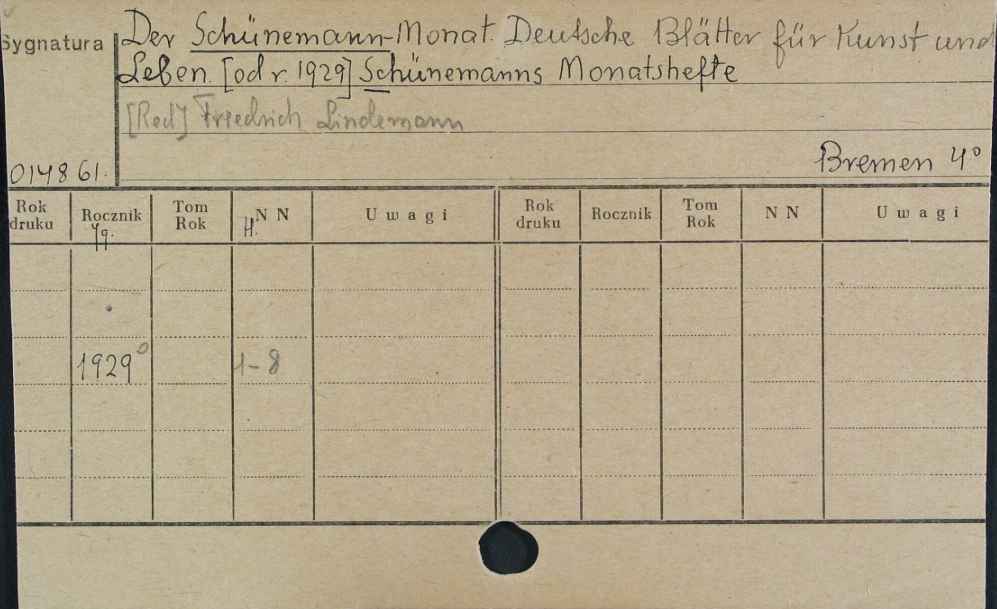 Sygnatura
Der Schünemann-Monat. Deutsche Blätter für Kunst und
Leben. [od r. 1929] Schünemanns Monatshefte
[Red] Friedrich Lindemann
Bremen 4°
014861.
Rok druku Rocznik Tom Rok NN Uwagi Rok druku Rocznik Tom Rok NN Uwagi
Jg. H.
1929° 1-8